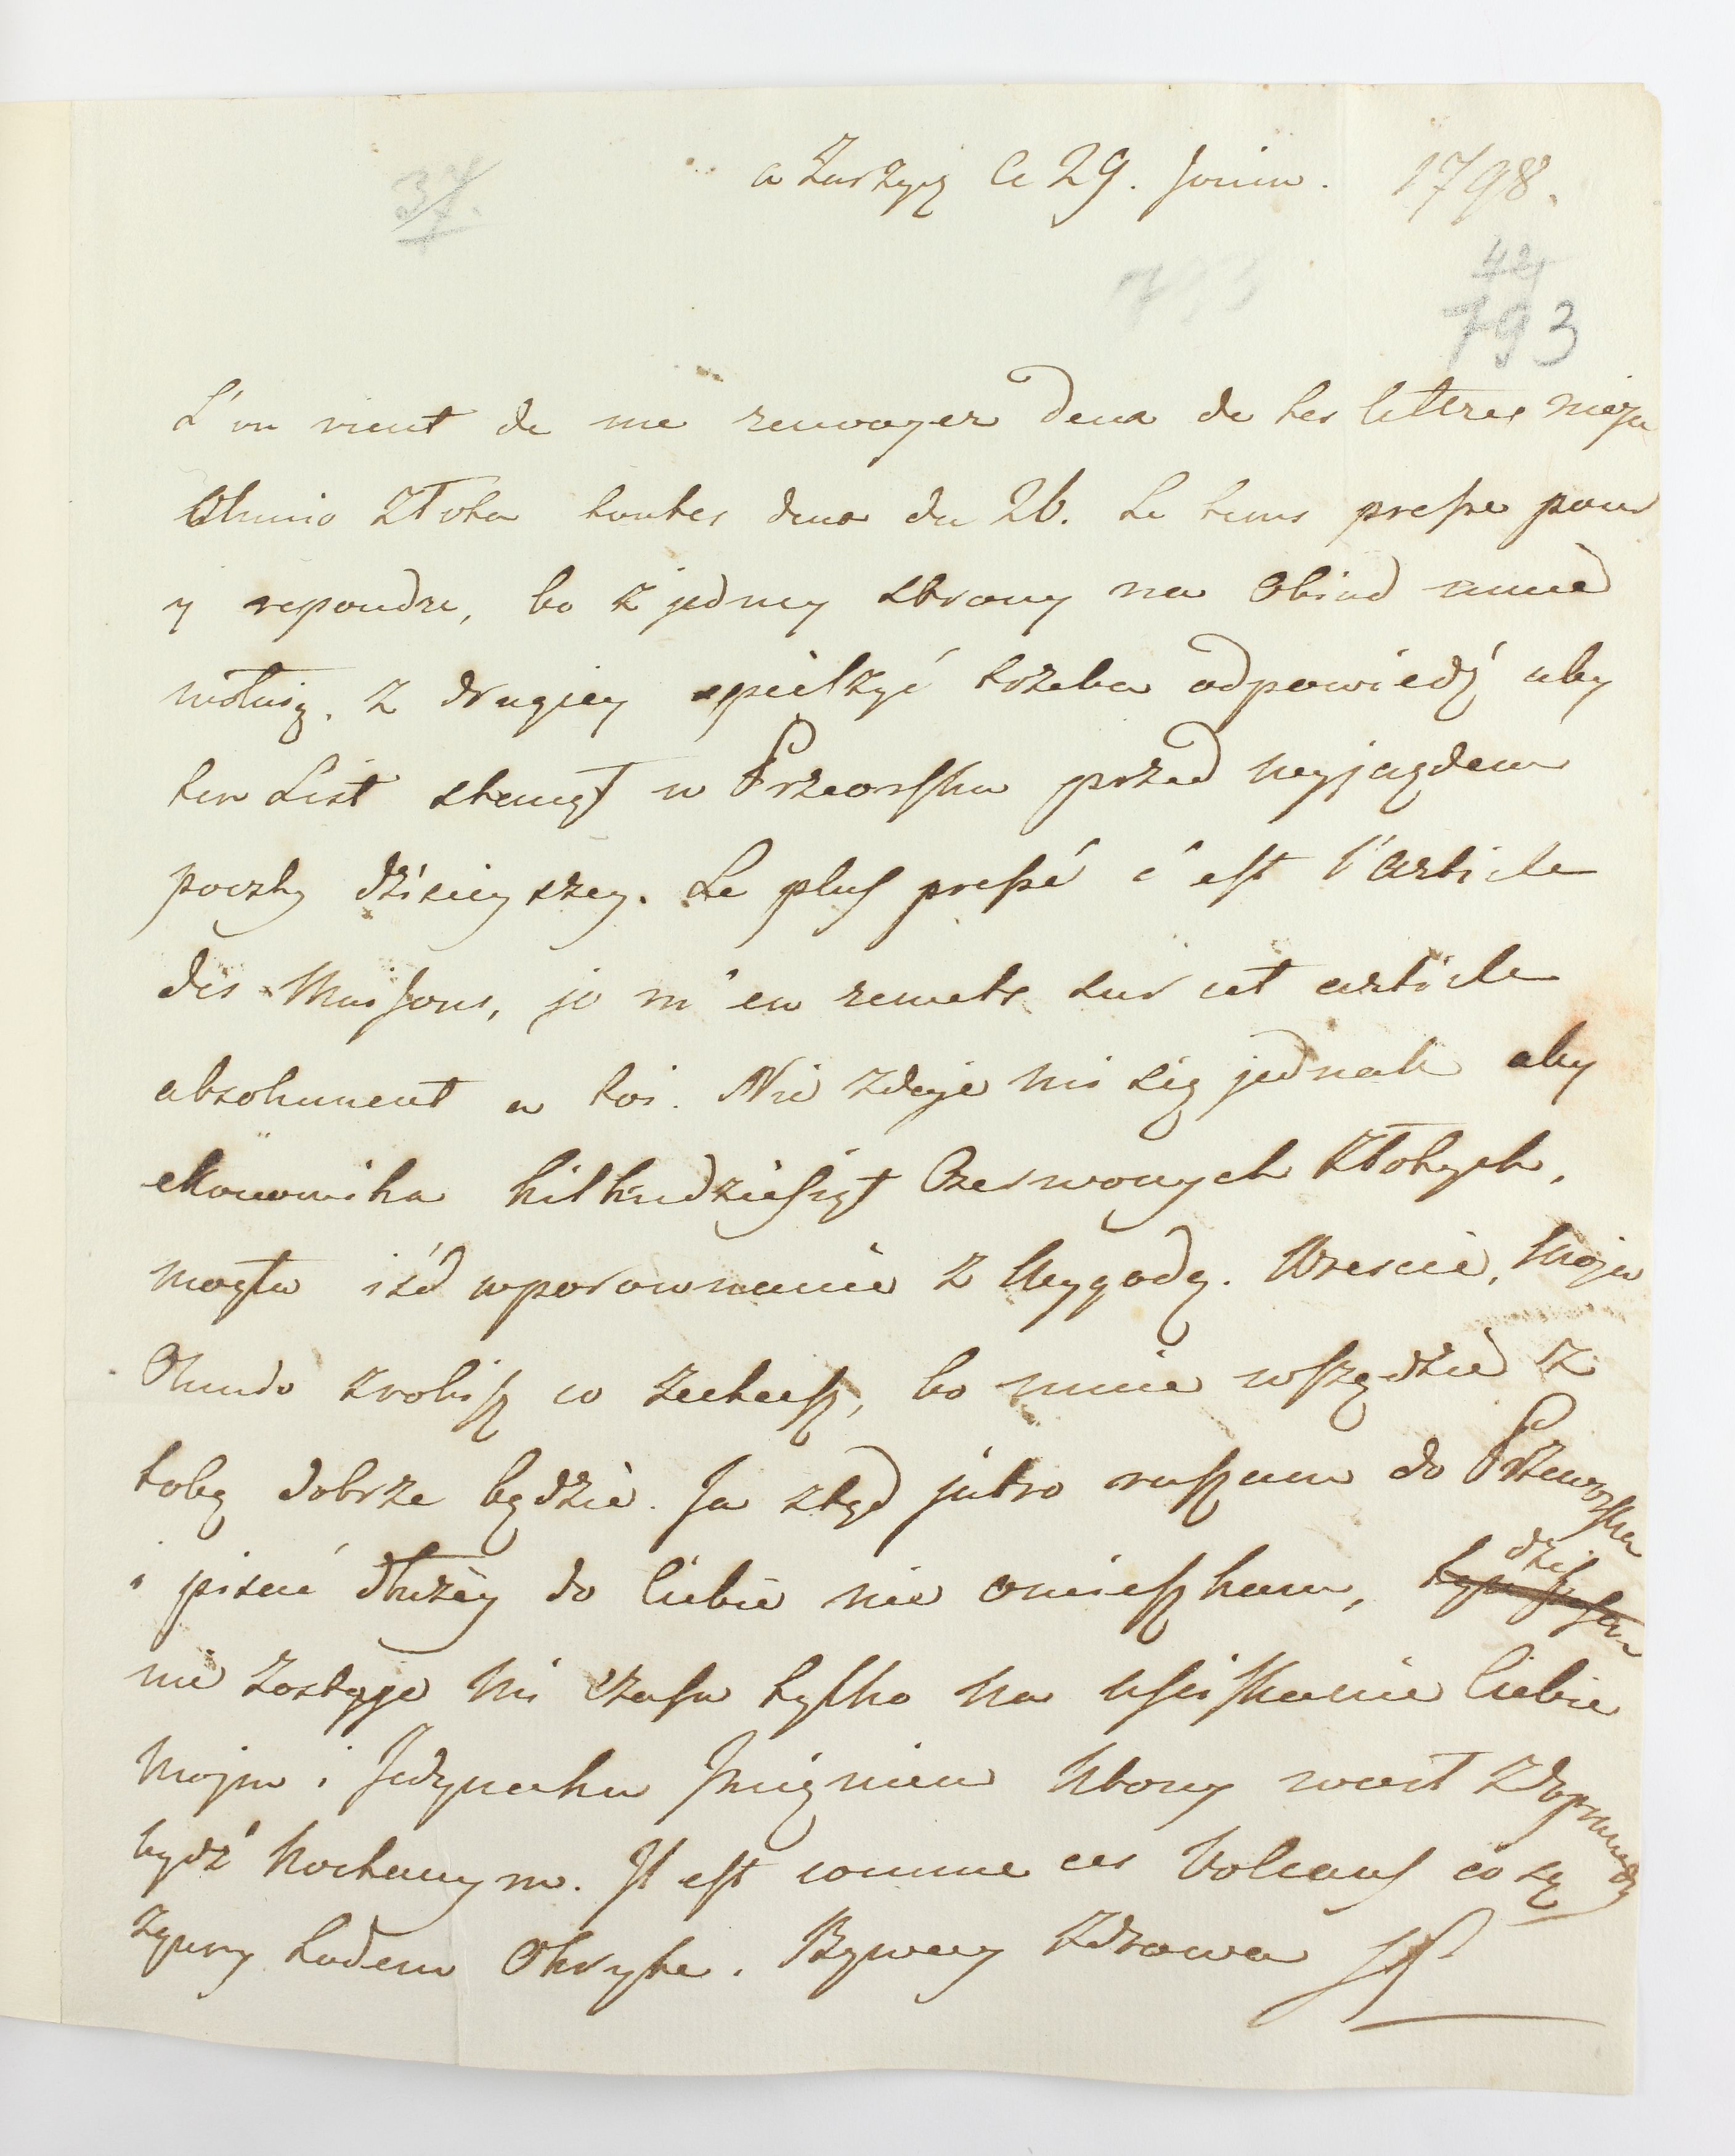 a Zarzycz Ce 29. Jouin. 1798.
37.
42
793
L'on vient de me renvoyer deux de tes lettres moja
Oluniu Złota toutes deux du 26. Le tems presse pour
y repondre, bo z jedney strony na Obiad mnie
wołaią, z drugiey spieszyć trzeba odpowiedź aby
ten List stanął w Przeorsku przed wyjazdem
poczty dzisieyszey. Le plus pressé c'est l'article
des Maisons, je m'en remets sur cet article
absolument a toi. Nie zdaje mi się jednak aby
ekonomika kilkudziesiąt Czerwonych Złotych,
mogła iśdź w porownanie z Wygodą. Wrescie, Moja
Oluniu zrobisz co zechcesz, bo mnie wszędzie z
tobą dobrze będzie. Ja ztąd jutro ruszam do Przeworska
i pisać dłużey do Ciebie nie omieszkam, dziś
nie zostaje mi czasu tylko na usciskanie Ciebie
Moja i Jedynaka Imieniem Ktory wart Zdoprawdy
bydź Kochanym. Il est comme ces Volcans co są
zgury Lodem Okryte. Bywaj Zdrowa